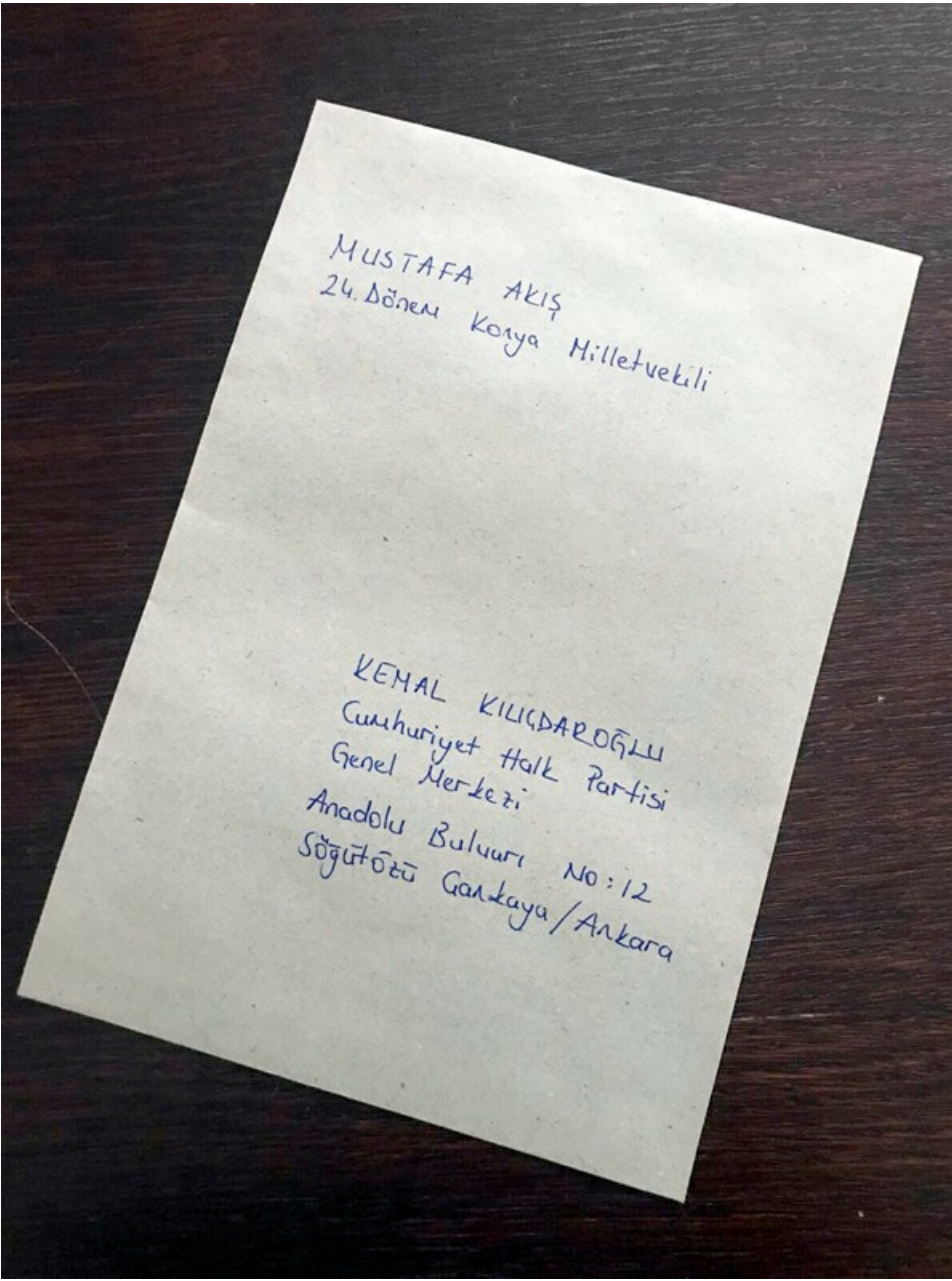 MUSTAFA AKIŞ
24. Dönem Konya Milletvekili
KEMAL KILIÇDAROĞLU
Cumhuriyet Halk Partisi
Genel Merkezi
Anadolu Bulvarı No:12
Söğütözü Çankaya/Ankara